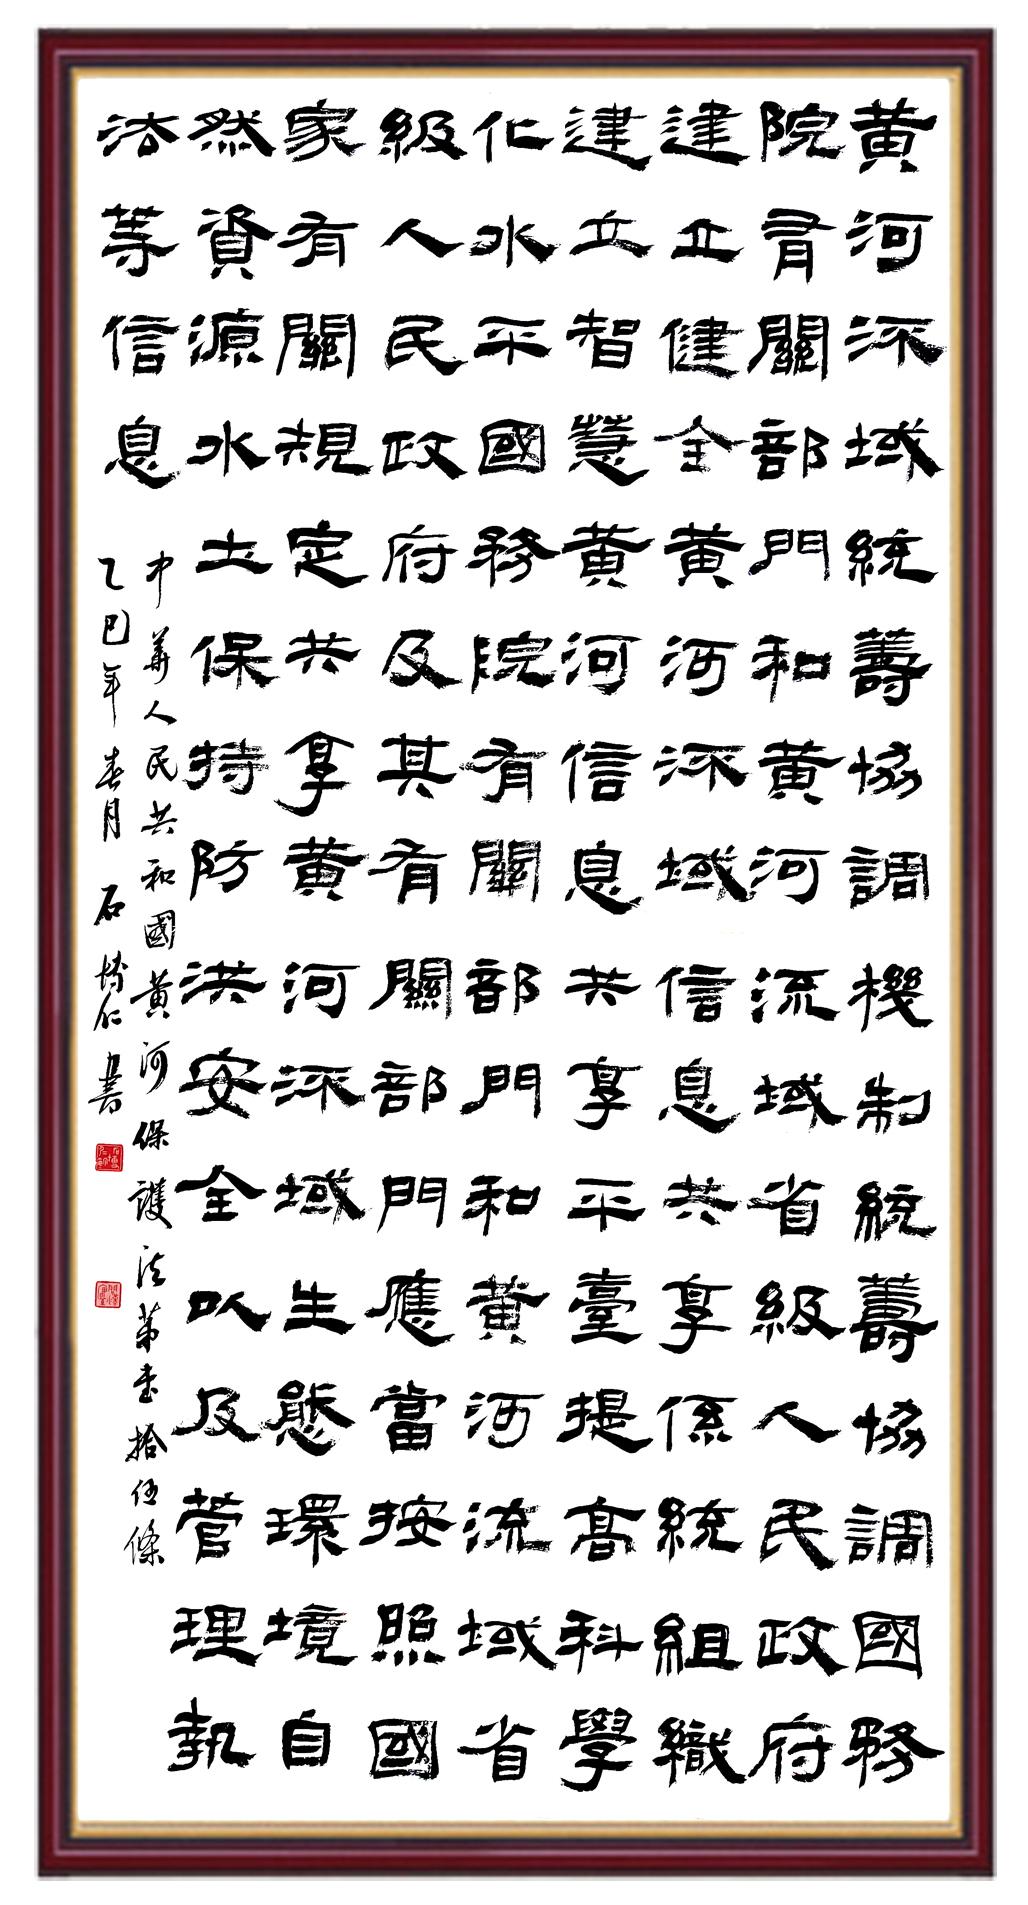 黃河流域統籌協調機制統籌協調國務
院有關部門和黃河流域省級人民政府
建立健全黃河流域信息共享係統組織
建立智慧黃河信息共享平臺提高科學
化水平國務院有關部門和黃河流域省
級人民政府及其有關部門應當按照國
家有關規定共享黃河流域生態環境自
然資源水土保持防洪安全以及管理執
法等信息
中華人民共和國黃河保護法第壹拾伍條
乙巳年春月 石博仁書